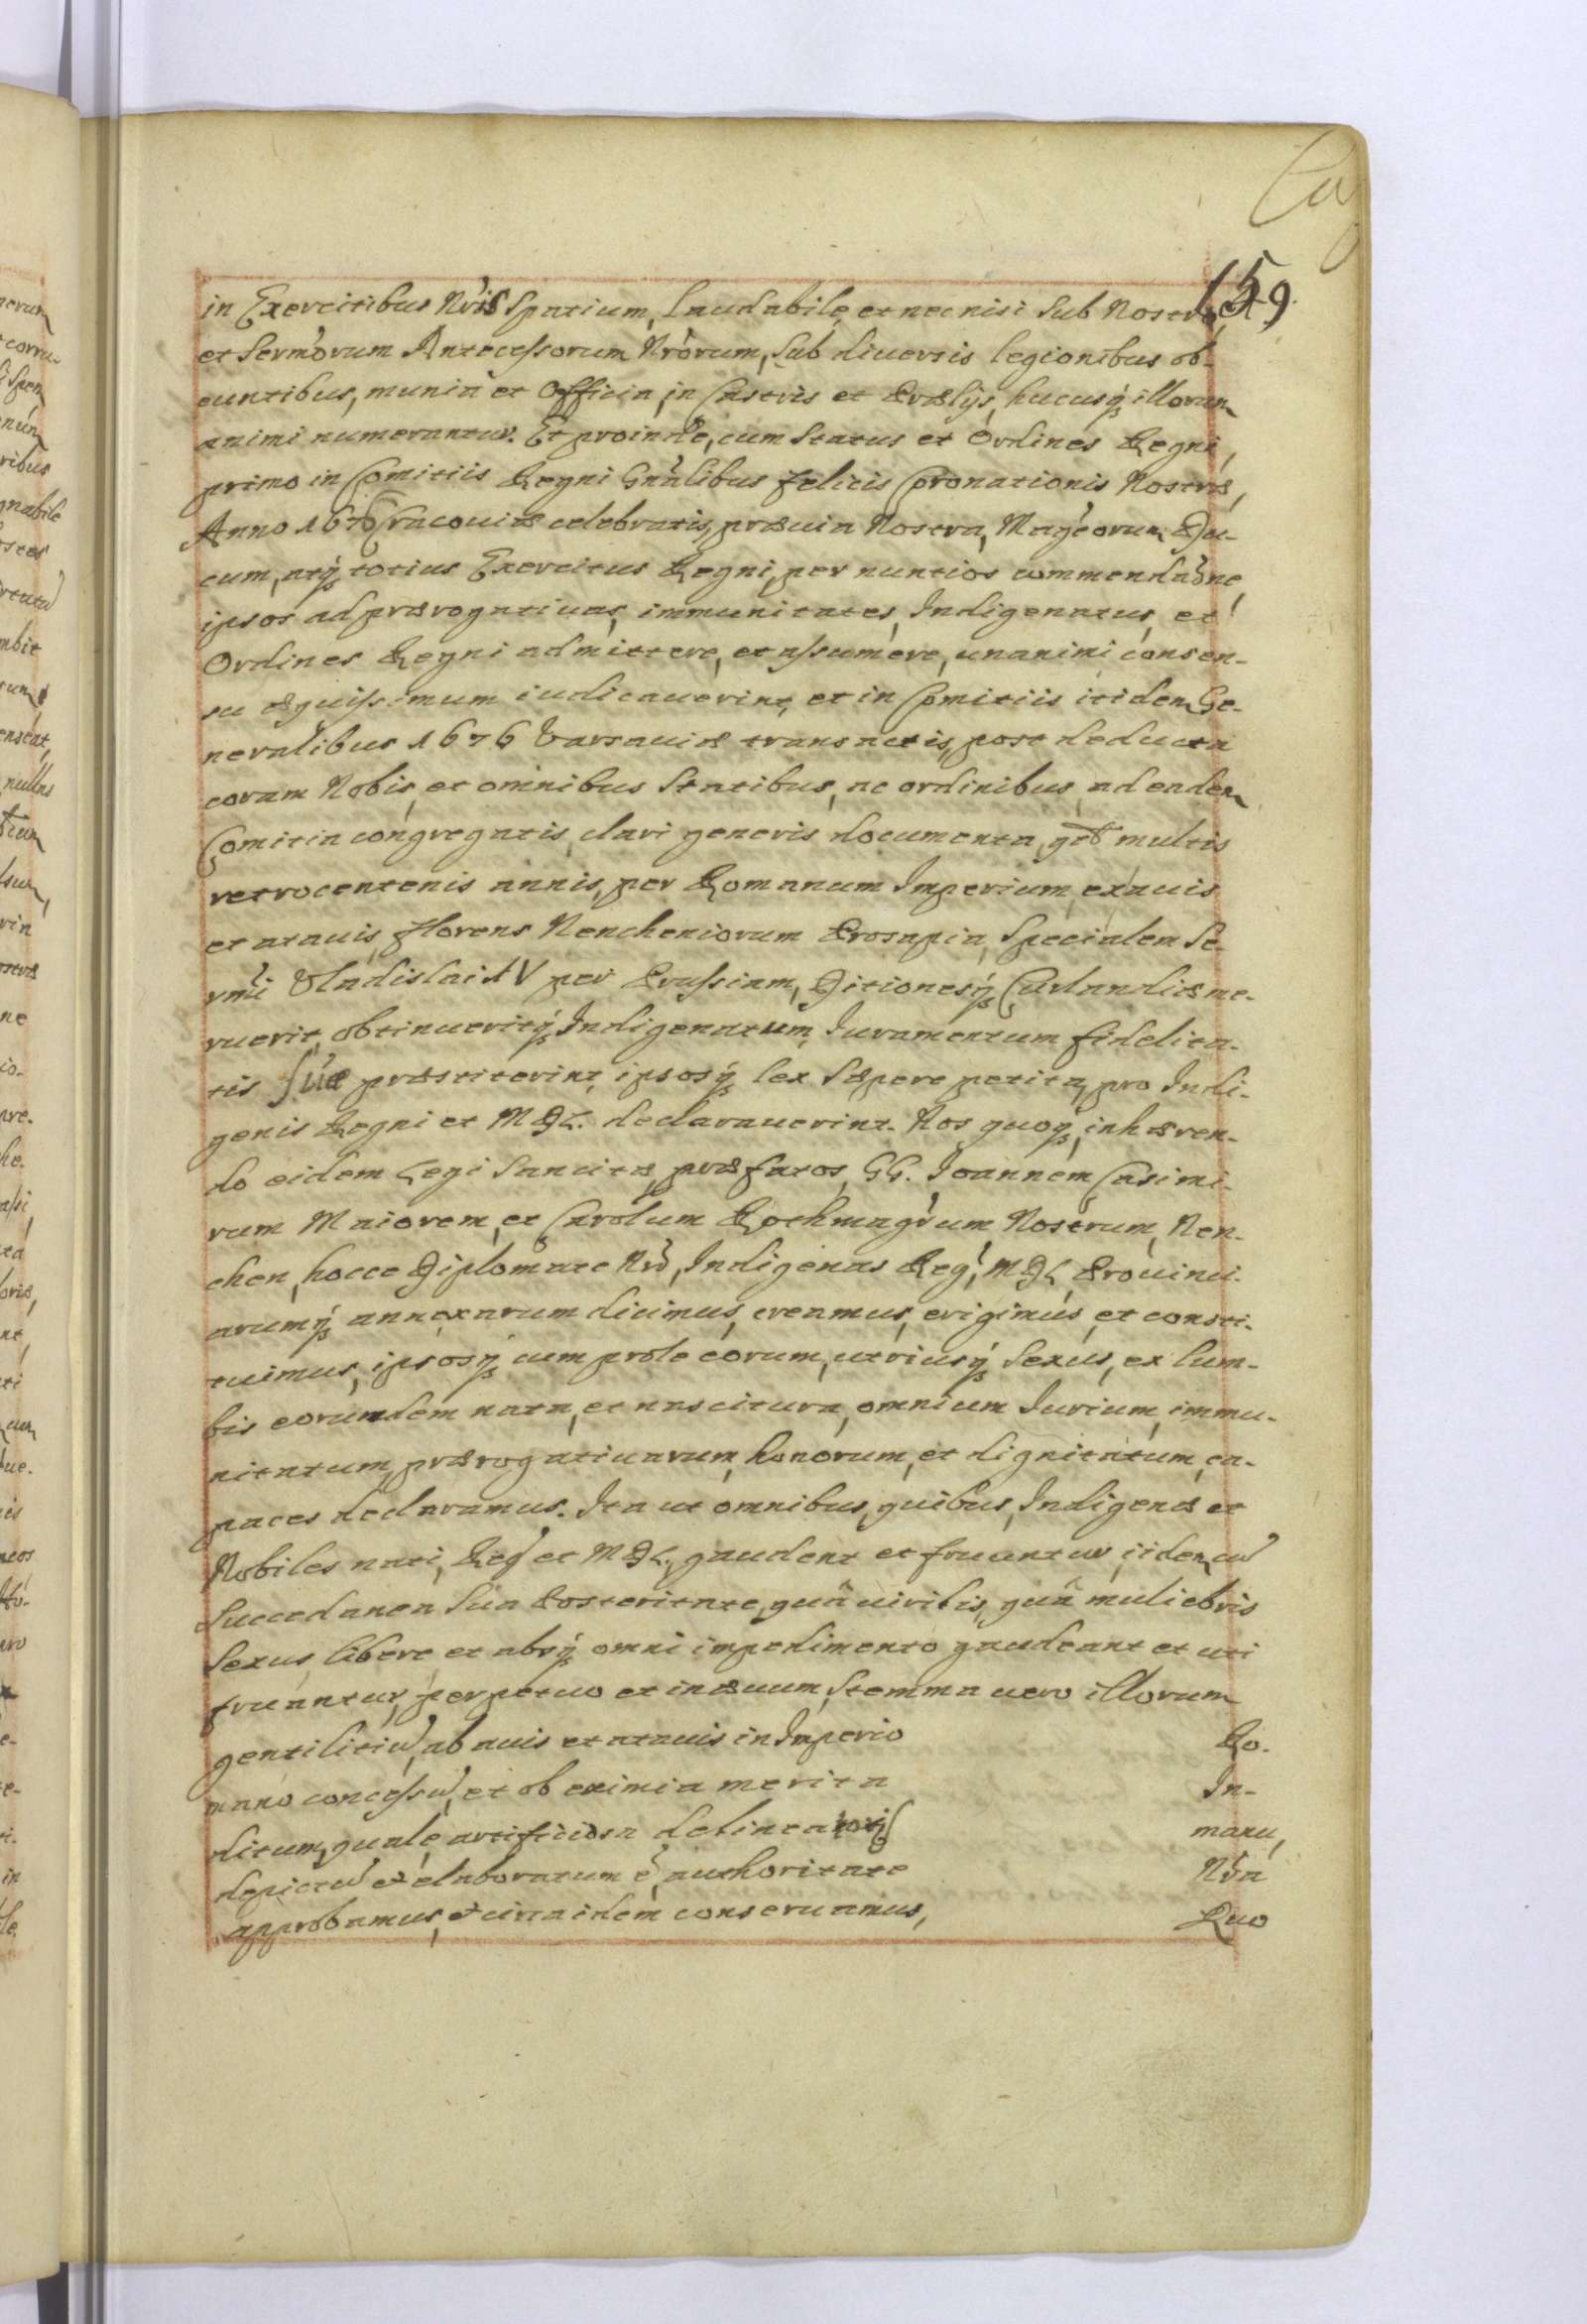 159
in Exercitibus Nris Spatium, laudabile, et nec nisi sub Nostro,
et Sermorum Antecessorum Nrorum, sub diuersis legionibus ob-
euntibus, munia et Officia, in Castris et Prælijs, hucusq illorum
animi numerantur. Et proinde, cum Status et Ordines Regni,
primo in Comitiis Regni Gnalibus felicis Coronationis Nostræ,
Anno 1676 Cracouiæ celebratis, præuia Nostra, Magcorum Du-
cum, atq totius Exercitus Regni, per nuntios commendaone,
ipsos ad prærogatiuas, immunitates, Indigenatus, et
Ordines Regni admittere, et assumere, unanimi consen-
su æquissimum iudicauerint, et in Comitiis itidem Ge-
neralibus 1676 Varsauiæ transactis, post deducta
coram Nobis, et omnibus Statibus, ac ordinibus, ad eadem
Comitia congregatis, clari generis documenta, qd multis
retrocentenis annis, per Romanum Imperium, ex auis
et atauis, florens Rencheniorum Prosapia, Specialem Se-
rmi Vladislai IV per Prussiam, Ditionesq Curlandiæ me-
ruerit, obtinueritq Indigenatum, Iuramentum fidelita-
tis suæ præstiterint, ipsosq lex sæpere petita, pro Indi-
genis Regni et MDL. declarauerint. Nos quoq, inhæren-
do eidem Legi Sancitæ, præfatos, GG. Joannem Casimi-
rum Maiorem, et Carolum Rothmagrum Nostrum, Ren-
chen, hocce Diplomate Nro, Indigenas Reg, MDL, Prouinci-
arumq annexarum dicimus, creamus, erigimus, et consti-
tuimus, ipsosq cum prole eorum, utriusq Sexus, ex lum-
bis eorundem nata, et nascitura, omnium Iurium, immu-
nitatum, prærogatiuarum, honorum, et dignitatum, ca-
paces declaramus. Ita ut omnibus, quibus, Indigenæ et
Nobiles nati, Reg et MDL., gaudent et fruuntur, iidem cu
Succedanea Sua Posteritate, qua uirilis, qua muliebris
Sexus, libere et absq omni impedimento gaudeant et uti
fruantur, perpetuo et in æuum, Stemma uero illorum
gentilitiu, ab auis et atauis in Imperio Ro-
mano concessu, et ob eximia merita In-
ditum, quale, artificiosa delineantis manu,
depictu et elaboratum e, authoritate Nra
approbamus, et circa idem conseruamus, Quo